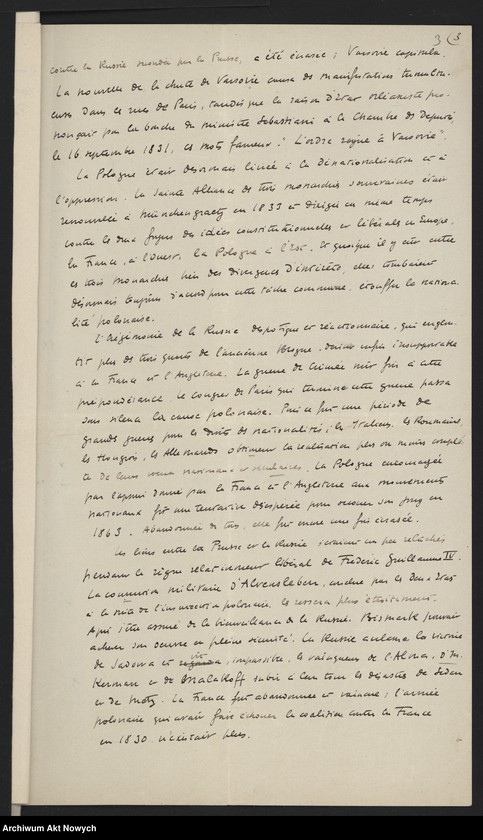 3 (3
contre la Russie secondée par la Prusse, a été écrasée ; Varsovie capitula.
La nouvelle de la chute de Varsovie causa des manifestations tumultu-
euses dans les rues de Paris, tandis que la raison d'état orléaniste pro-
nonçait par la bouche du ministre Sebastiani à la Chambre des Députés,
le 16 septembre 1831, ces mots fameux : "L'ordre règne à Varsovie".
La Pologne était désormais livrée à la dénationalisation et à
l'oppression. La Sainte Alliance des trois monarchies souveraines était
renouvelée à Münchengraetz en 1833 et dirigée en même temps
contre les deux foyers des idées constitutionnelles et libérales en Europe,
la France, à l'Ouest, la Pologne à l'Est. Et quoiqu'il y eût entre
ces trois monarchies bien des divergences d'intérêts, elles tombaient
désormais toujours d'accord pour cette tâche commune, étouffer la nationa-
lité polonaise.
L'hégémonie de la Russie despotique et réactionnaire, qui englou-
tit plus de trois quarts de l'ancienne Pologne, devint enfin insupportable
à la France et l'Angleterre. La guerre de Crimée mit fin à cette
prépondérance. Le congrès de Paris qui termina cette guerre passa
sous silence la cause polonaise. Puis ce fut une période de
grandes guerres pour les droits des nationalités ; les Italiens, les Roumains,
les Hongrois, les Allemands obtinrent la réalisation plus ou moins complè-
te de leurs voeux nationaux et séculaires. La Pologne encouragée
par l'appui donné par la France et l'Angleterre aux mouvements
nationaux fit une tentative désespérée pour secouer son joug en
1863. Abandonnée de tous, elle fut encore une fois écrasée.
Les liens entre la Prusse et la Russie s'étaient un peu relâchés
pendant le règne relativement libéral de Frédéric Guillaume IV.
La convention militaire d'Alvensleben, conclue par les deux états
à la suite de l'insurrection polonaise, les resserra plus étroitement.
Après s'être assuré de la bienveillance de la Russie, Bismark pouvait
achever son oeuvre en pleine sécurité. La Russie acclama la victoire
de Sadova et vit, impassible, les vainqueurs de l'Alma, d'In-
kerman et de Malakoff subir à leur tour les désastres de Sedan
et de Metz. La France fut abandonnée et vaincue ; l'armée
polonaise qui avait fait échouer la coalition contre la France
en 1830 n'existait plus.
Archiwum Akt Nowych